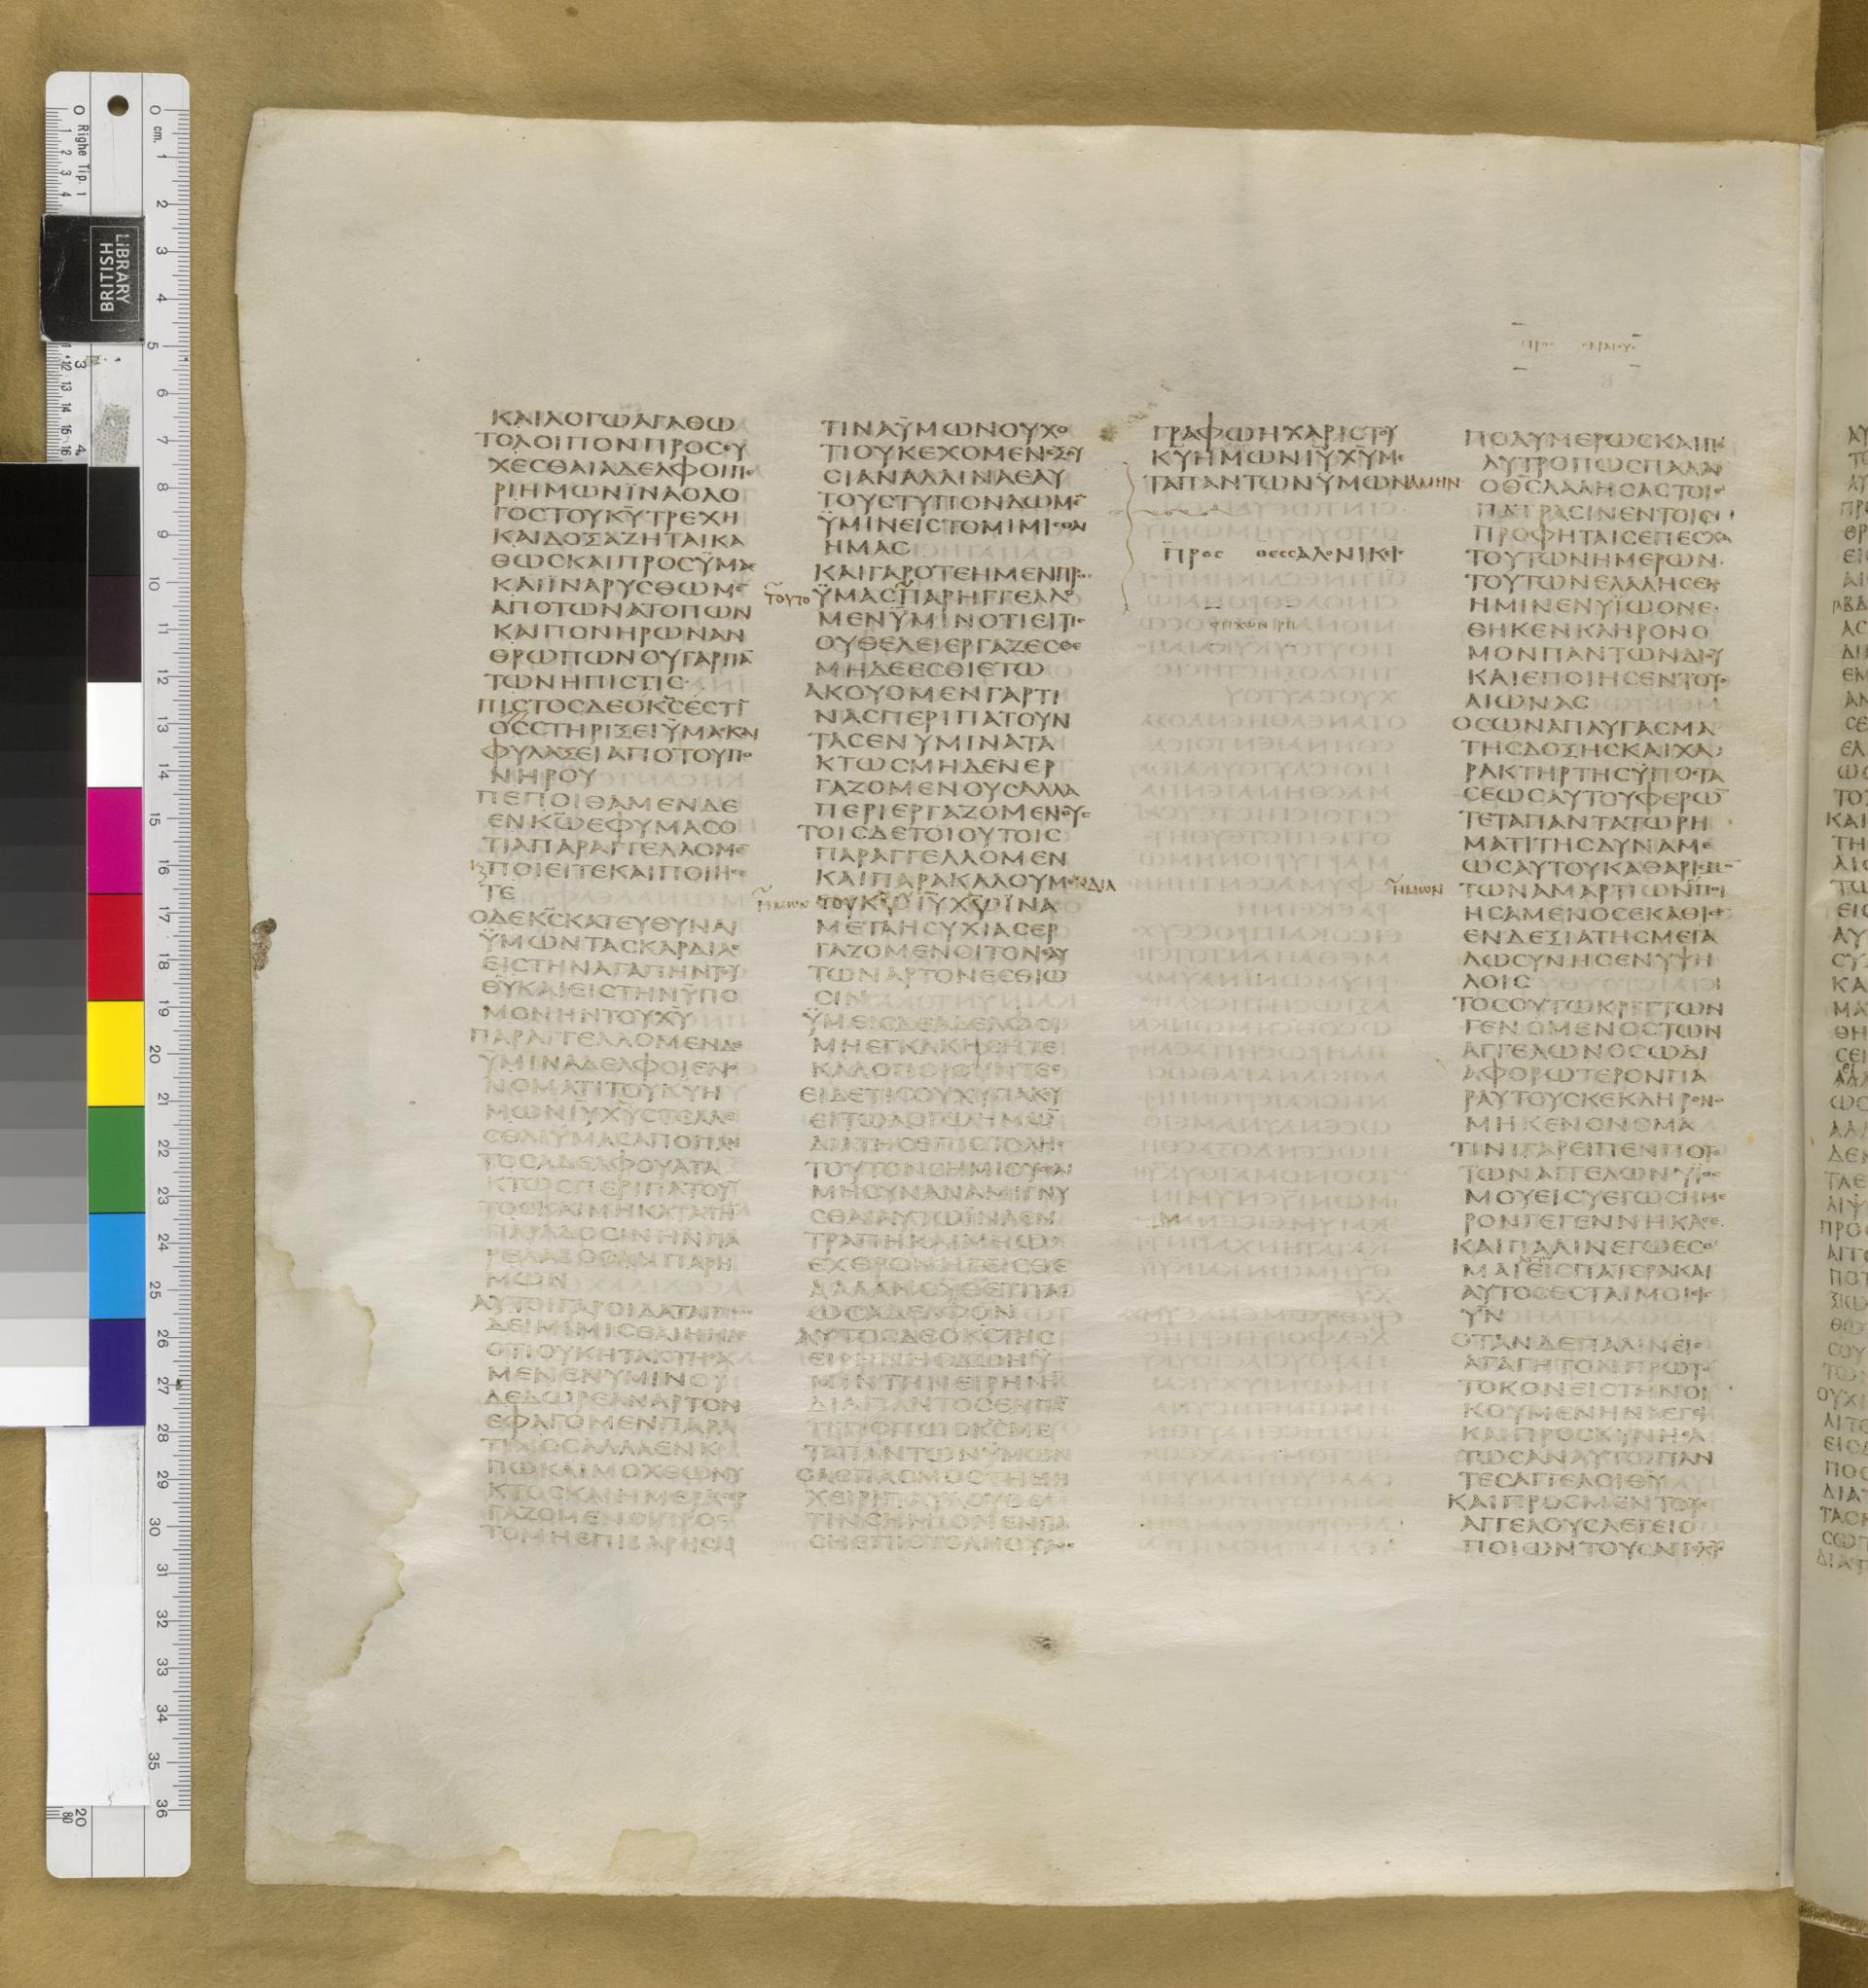 ΚΑΙΛΟΓΩΑΓΑΘΩ
ΤΟΛΟΙΠΟΝΠΡΟΣΕΥ
ΧΕΣΘΑΙΑΔΕΛΦΟΙΠΕ
ΡΙΗΜΩΝΪΝΑΟΛΟ
ΓΟΣΤΟΥΚΥΤΡΕΧΗ
ΚΑΙΔΟΞΑΖΗΤΑΙΚΑ
ΘΩΣΚΑΙΠΡΟΣΫΜΑΣ
ΚΑΙΪΝΑΡΥΣΘΩΜΕ
ΑΠΟΤΩΝΑΤΟΠΩΝ
ΚΑΙΠΟΝΗΡΩΝΑΝ
ΘΡΩΠΩΝΟΥΓΑΡΠΑ
ΤΩΝΗΠΙΣΤΙΣ
ΠΙΣΤΟΣΔΕΟΚΣΕΣΤΙ
ΟΣΣΤΗΡΙΞΕΙΫΜΑΣΚΑΙ
ΦΥΛΑΞΕΙΑΠΟΤΟΥΠΟ
ΝΗΡΟΥ
ΠΕΠΟΙΘΑΜΕΝΔΕ
ΕΝΚΩΕΦΥΜΑΣΟ
ΤΙΑΠΑΡΑΓΓΕΛΛΟΜΕ
ΚΑΙΠΟΙΕΙΤΕΚΑΙΠΟΙΗΣΕ
ΤΕ
ΟΔΕΚΣΚΑΤΕΥΘΥΝΑΙ
ΫΜΩΝΤΑΣΚΑΡΔΙΑΣ
ΕΙΣΤΗΝΑΓΑΠΗΝΤΟΥ
ΘΥΚΑΙΕΙΣΤΗΝΫΠΟ
ΜΟΝΗΝΤΟΥΧΥ
ΠΑΡΑΓΓΕΛΛΟΜΕΝΔΕ
ΫΜΙΝΑΔΕΛΦΟΙΕΝΟ
ΝΟΜΑΤΙΤΟΥΚΥΗ
ΜΩΝΙΥΧΥΣΤΕΛΛΕ
ΣΘΑΙΫΜΑΣΑΠΟΠΑΝ
ΤΟΣΑΔΕΛΦΟΥΑΤΑ
ΚΤΩΣΠΕΡΙΠΑΤΟΥ
ΤΟΣΚΑΙΜΗΚΑΤΑΤΗ
ΠΑΡΑΔΟΣΙΝΗΝΠΑ
ΡΕΛΑΒΟΣΑΝΠΑΡΗ
ΜΩΝ
ΔΕΙΜΙΜΙΣΘΑΙΗΜΑΣ
ΟΤΙΟΥΚΗΤΑΚΤΗΣΑ
ΜΕΝΕΝΫΜΙΝΟΥ
ΔΕΔΩΡΕΑΝΑΡΤΟΝ
ΕΦΑΓΟΜΕΝΠΑΡΑ
ΤΙΝΟΣΑΛΛΑΕΝΚΟ
ΠΩΚΑΙΜΟΧΘΩΝΥ
ΚΤΟΣΚΑΙΗΜΕΡΑΣΕΡ
ΓΑΖΟΜΕΝΟΙΠΡΟΣ
ΤΟΜΗΕΠΙΒΑΡΗΣΑΙ
ΤΙΝΑΫΜΩΝΟΥΧΟ
ΤΙΟΥΚΕΧΟΜΕΝΕΞΟΥ
ΣΙΑΝΑΛΛΙΝΑΕΑΥ
ΤΟΥΣΤΥΠΟΝΔΩΜΕ
ΫΜΙΝΕΙΣΤΟΜΙΜΙΣΘΑΙ
ΗΜΑΣ
ΚΑΙΓΑΡΟΤΕΗΜΕΝΠΡΟΣ
ΤΟΥΤΟ
ΫΜΑΣΠΑΡΗΓΓΕΛΛΟ
ΜΕΝΫΜΙΝΟΤΙΕΙΤΙΣ
ΟΥΘΕΛΕΙΕΡΓΑΖΕΣΘΕ
ΜΗΔΕΕΣΘΙΕΤΩ
ΑΚΟΥΟΜΕΝΓΑΡΤΙ
ΝΑΣΠΕΡΙΠΑΤΟΥΝ
ΤΑΣΕΝΥΜΙΝΑΤΑ
ΚΤΩΣΜΗΔΕΝΕΡ
ΓΑΖΟΜΕΝΟΥΣΑΛΛΑ
ΠΕΡΙΕΡΓΑΖΟΜΕΝΟΥΣ
ΤΟΙΣΔΕΤΟΙΟΥΤΟΙΣ
ΠΑΡΑΓΓΕΛΛΟΜΕΝ
ΚΑΙΠΑΡΑΚΑΛΟΥΜΕΝΔΙΑ
ΗΜΩΝ
ΤΟΥΚΩΙΥΧΩΪΝΑ
ΜΕΤΑΗΣΥΧΙΑΣΕΡ
ΓΑΖΟΜΕΝΟΙΤΟΝΕΑΥ
ΤΩΝΑΡΤΟΝΕΣΘΙΩ
ΣΙΝ
ΫΜΕΙΣΔΕΑΔΕΛΦΟΙ
ΜΗΕΓΚΑΚΗΣΗΤΕ
ΚΑΛΟΠΟΙΟΥΝΤΕΣ
ΕΙΔΕΤΙΣΟΥΧΥΠΑΚΥ
ΕΙΤΩΛΟΓΩΗΜΩ
ΔΙΑΤΗΣΕΠΙΣΤΟΛΗΣ
ΤΟΥΤΟΝΣΗΜΙΟΥΣΘΑΙ
ΜΗΣΥΝΑΝΑΜΙΓΝΥ
ΣΘΑΙΑΥΤΩΪΝΑΕΝ
ΤΡΑΠΗΚΑΙΜΗΩΣ
ΕΧΘΡΟΝΗΓΕΙΣΘΕ
ΑΛΛΑΝΟΥΘΕΤΙΤΑΙ
ΩΣΑΔΕΛΦΟΝ
ΑΥΤΟΣΔΕΟΚΣΤΗΣ
ΕΙΡΗΝΗΣΔΩΗΫ
ΜΙΝΤΗΝΕΙΡΗΝΗ
ΔΙΑΠΑΝΤΟΣΕΝΠΑ
ΤΙΤΡΟΠΩΟΚΣΜΕ
ΤΑΠΑΝΤΩΝΫΜΩΝ
ΟΑΣΠΑΣΜΟΣΤΗΕΜΗ
ΧΕΙΡΙΠΑΥΛΟΥΟΕΣ
ΤΙΝΣΗΜΙΟΝΕΝΠΑ
ΣΗΕΠΙΣΤΟΛΗΟΥΤΩΣ
ΓΡΑΦΩΗΧΑΡΙΣΤΟΥ
ΚΥΗΜΩΝΙΥΧΥΜΕ
ΤΑΠΑΝΤΩΝΫΜΩΝΑΜΗΝ
ΠΡΟΣ ΘΕΣΣΑΛΟΝΙΚΙΣ
ΣΤΙΧΩΝ ΡΠ
ΠΡΟΣ ΕΒΡΑΙΟΥΣ
ΠΟΛΥΜΕΡΩΣΚΑΙΠΟ
ΛΥΤΡΟΠΩΣΠΑΛΑΙ
ΟΘΣΛΑΛΗΣΑΣΤΟΙΣ
ΠΑΤΡΑΣΙΝΕΝΤΟΙΣ
ΠΡΟΦΗΤΑΙΣΕΠΕΣΧΑ
ΤΟΥΤΩΝΗΜΕΡΩΝ
ΤΟΥΤΩΝΕΛΑΛΗΣΕΝ
ΗΜΙΝΕΝΥΪΩΟΝΕ
ΘΗΚΕΝΚΛΗΡΟΝΟ
ΜΟΝΠΑΝΤΩΝΔΙΟΥ
ΚΑΙΕΠΟΙΗΣΕΝΤΟΥΣ
ΑΙΩΝΑΣ
ΟΣΩΝΑΠΑΥΓΑΣΜΑ
ΤΗΣΔΟΞΗΣΚΑΙΧΑ
ΡΑΚΤΗΡΤΗΣΫΠΟΣΤΑ
ΣΕΩΣΑΥΤΟΥΦΕΡΩ
ΤΕΤΑΠΑΝΤΑΤΩΡΗ
ΜΑΤΙΤΗΣΔΥΝΑΜΕ
ΩΣΑΥΤΟΥΚΑΘΑΡΙΣΜΟ
ΗΜΩΝ
ΤΩΝΑΜΑΡΤΙΩΝΠΟΙ
ΗΣΑΜΕΝΟΣΕΚΑΘΙΣΕ
ΕΝΔΕΞΙΑΤΗΣΜΕΓΑ
ΛΩΣΥΝΗΣΕΝΥΨΗ
ΛΟΙΣ
ΤΟΣΟΥΤΩΚΡΙΤΤΩΝ
ΓΕΝΟΜΕΝΟΣΤΩΝ
ΑΓΓΕΛΩΝΟΣΩΔΙ
ΑΦΟΡΩΤΕΡΟΝΠΑ
ΡΑΥΤΟΥΣΚΕΚΛΗΡΟΝΟ
ΜΗΚΕΝΟΝΟΜΑ
ΤΙΝΙΓΑΡΕΙΠΕΝΠΟΤΕ
ΤΩΝΑΓΓΕΛΩΝΥΪΟΣ
ΜΟΥΕΙΣΥΕΓΩΣΗΜΕ
ΡΟΝΓΕΓΕΝΝΗΚΑΣΕ
ΚΑΙΠΑΛΙΝΕΓΩΕΣΟ
ΜΑΙΕΙΣΠΑΤΕΡΑΚΑΙ
ΑΥΤΟΣΕΣΤΑΙΜΟΙΕΙΣ
ΥΝ
ΟΤΑΝΔΕΠΑΛΙΝΕΙΣ
ΑΓΑΓΗΤΟΝΠΡΩΤΟ
ΤΟΚΟΝΕΙΣΤΗΝΟΙ
ΚΟΥΜΕΝΗΝΛΕΓΕΙ
ΚΑΙΠΡΟΣΚΥΝΗΣΑ
ΤΩΣΑΝΑΥΤΩΠΑΝ
ΤΕΣΑΓΓΕΛΟΙΘΥ
ΚΑΙΠΡΟΣΜΕΝΤΟΥΣ
ΑΓΓΕΛΟΥΣΛΕΓΕΙΟ
ΠΟΙΩΝΤΟΥΣΑΓΓΕΛΟΥΣ
BRITISH
LIBRARY
Righe Tip. 1
cm.